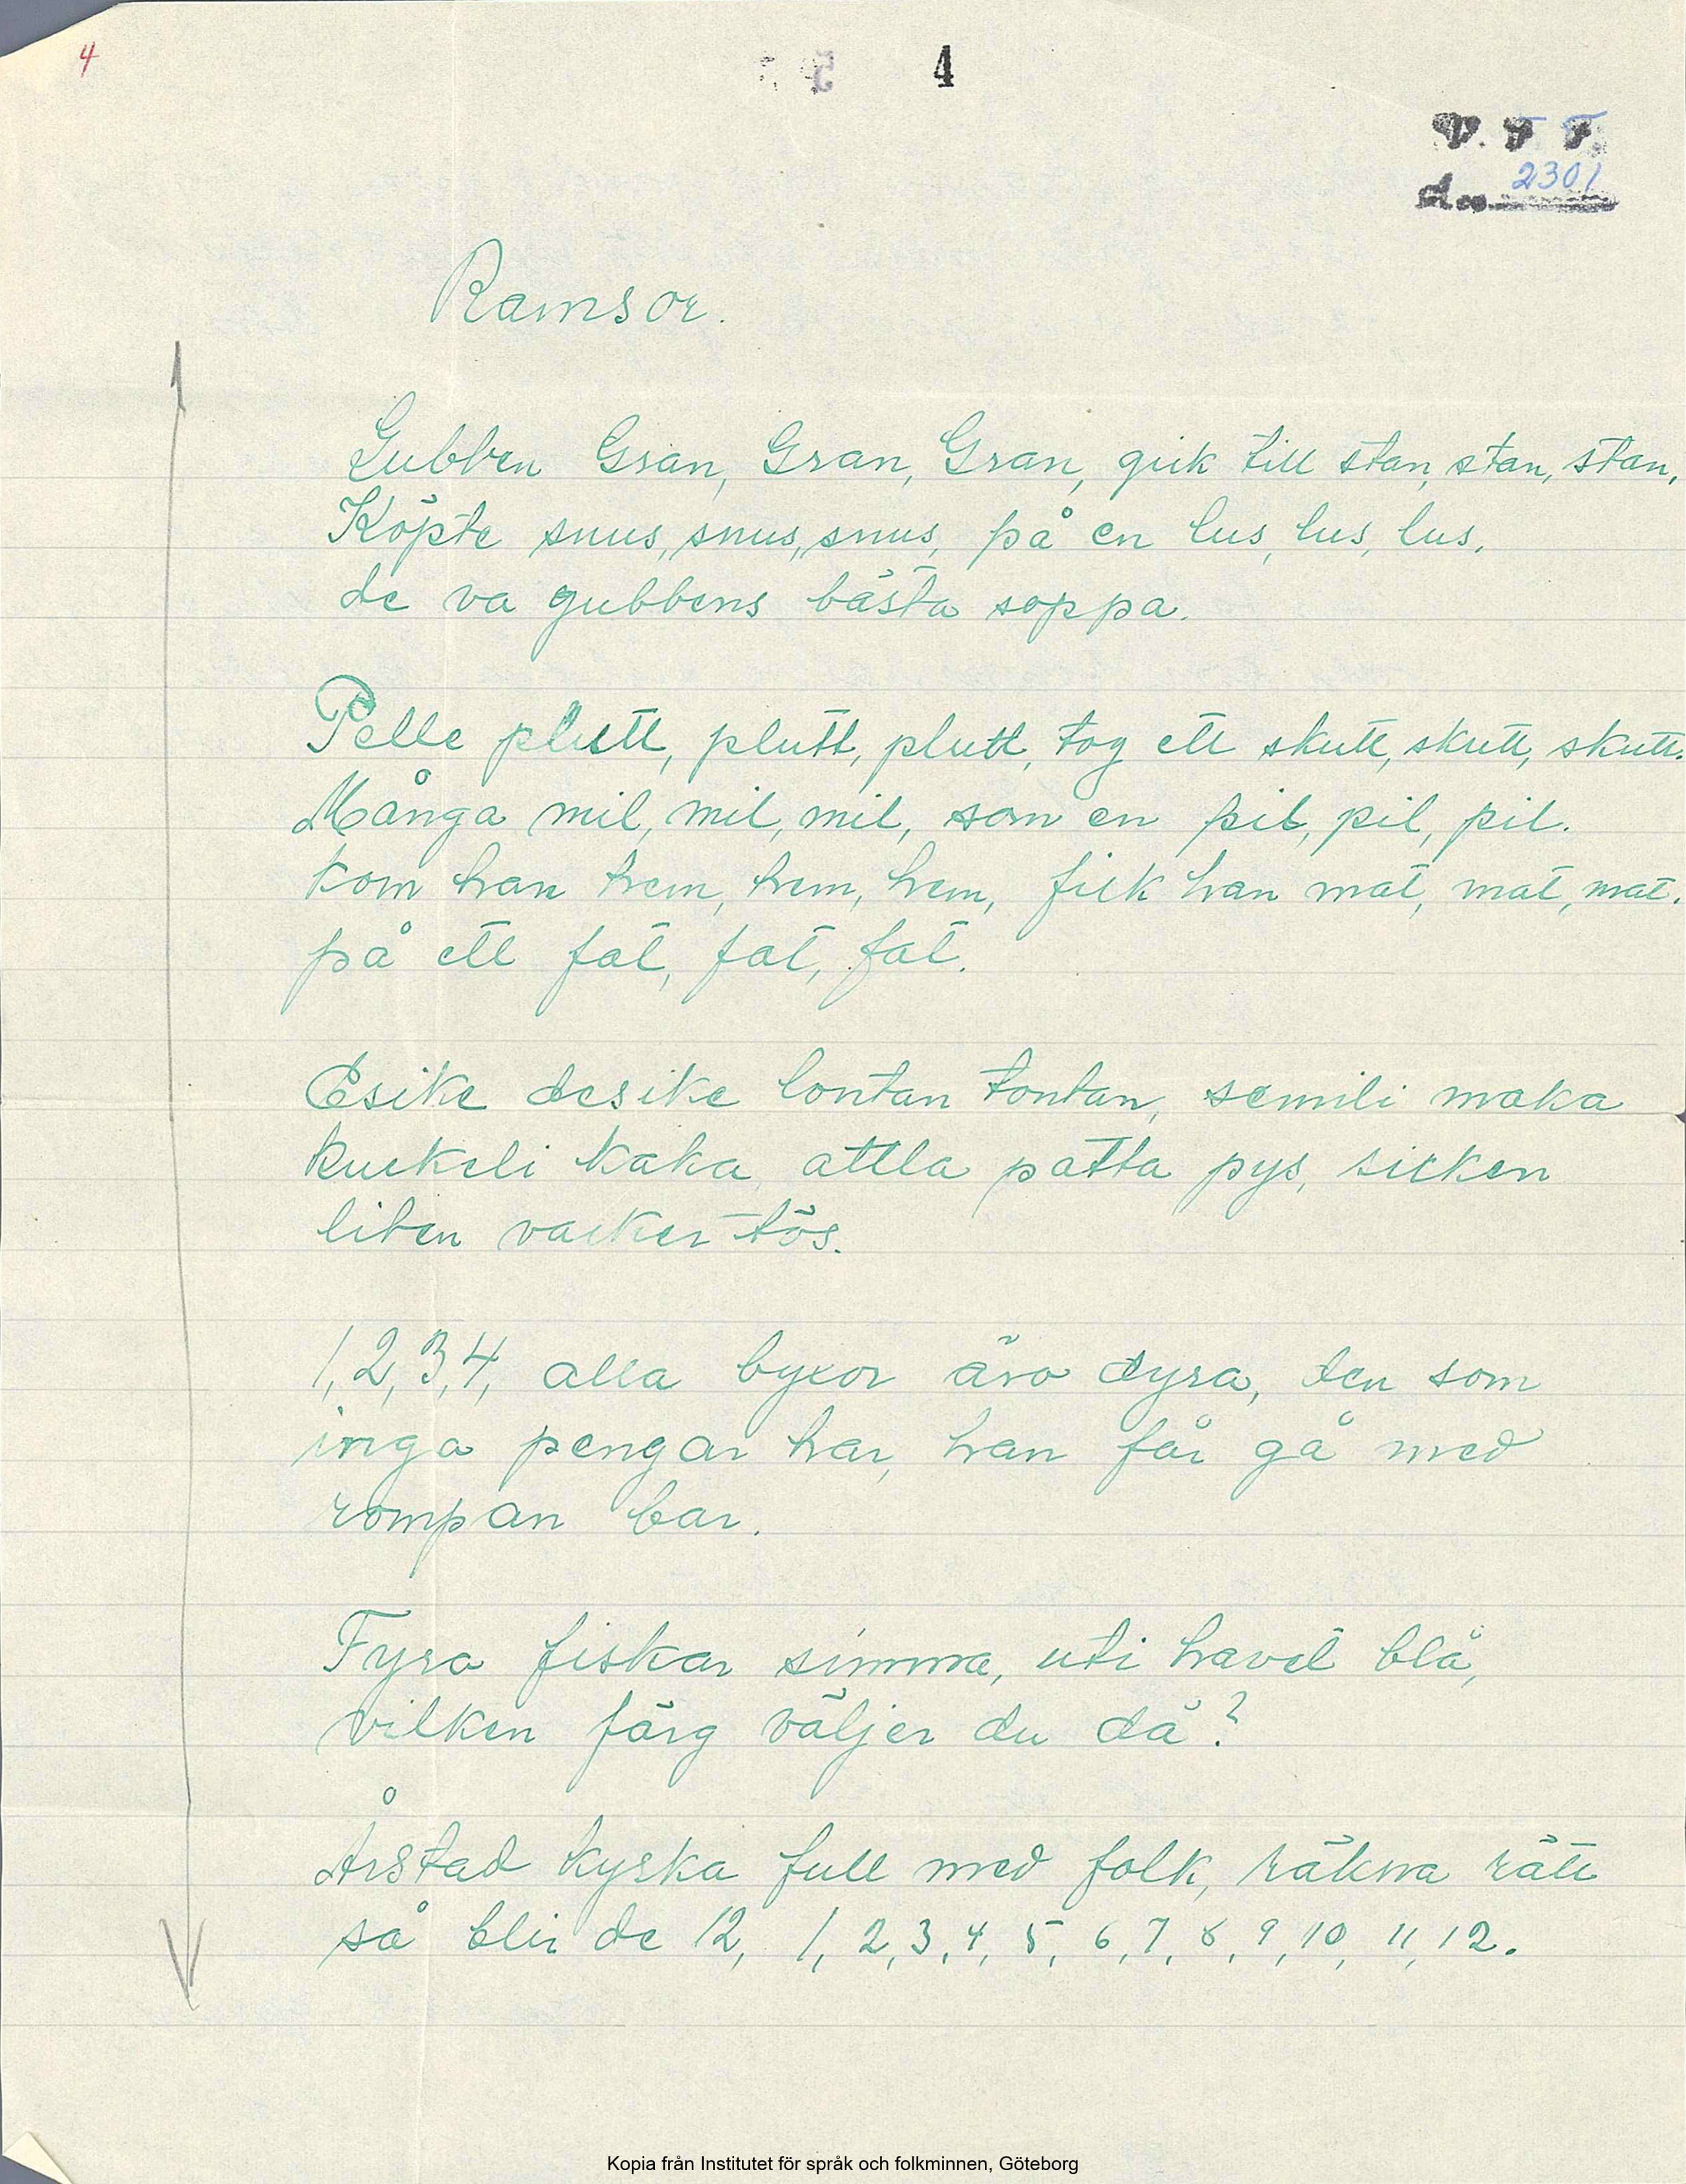 4
4
V. F. F.
2301
Ramsor.
Gubben Gran, Gran, Gran, gick till stan, stan, stan,
Köpte snus, snus, snus, på en lus, lus, lus,
de va gubbens bästa soppa.
Pelle plutt, plutt, plutt, tog ett skutt, skutt, skutt.
Många mil, mil, mil, som en pil, pil, pil.
kom han hem, hem, hem, fick han mat, mat, mat.
på ett fat, fat, fat.
Esike desike lontan tontan, semili maka
kuckeli kaka, attla patta pys, sicken
liten vacker tös.
1, 2, 3, 4, alla byxor äro dyra, den som
inga pengar har, han får gå med
rompan bar.
Fyra fiskar simma, uti havet blå,
vilken färg väljer du då?
Årstad kyrka full med folk, räkna rätt
så blir de 12, 1, 2, 3, 4, 5, 6, 7, 8, 9, 10, 11, 12.
Kopia från Institutet för språk och folkminnen, Göteborg